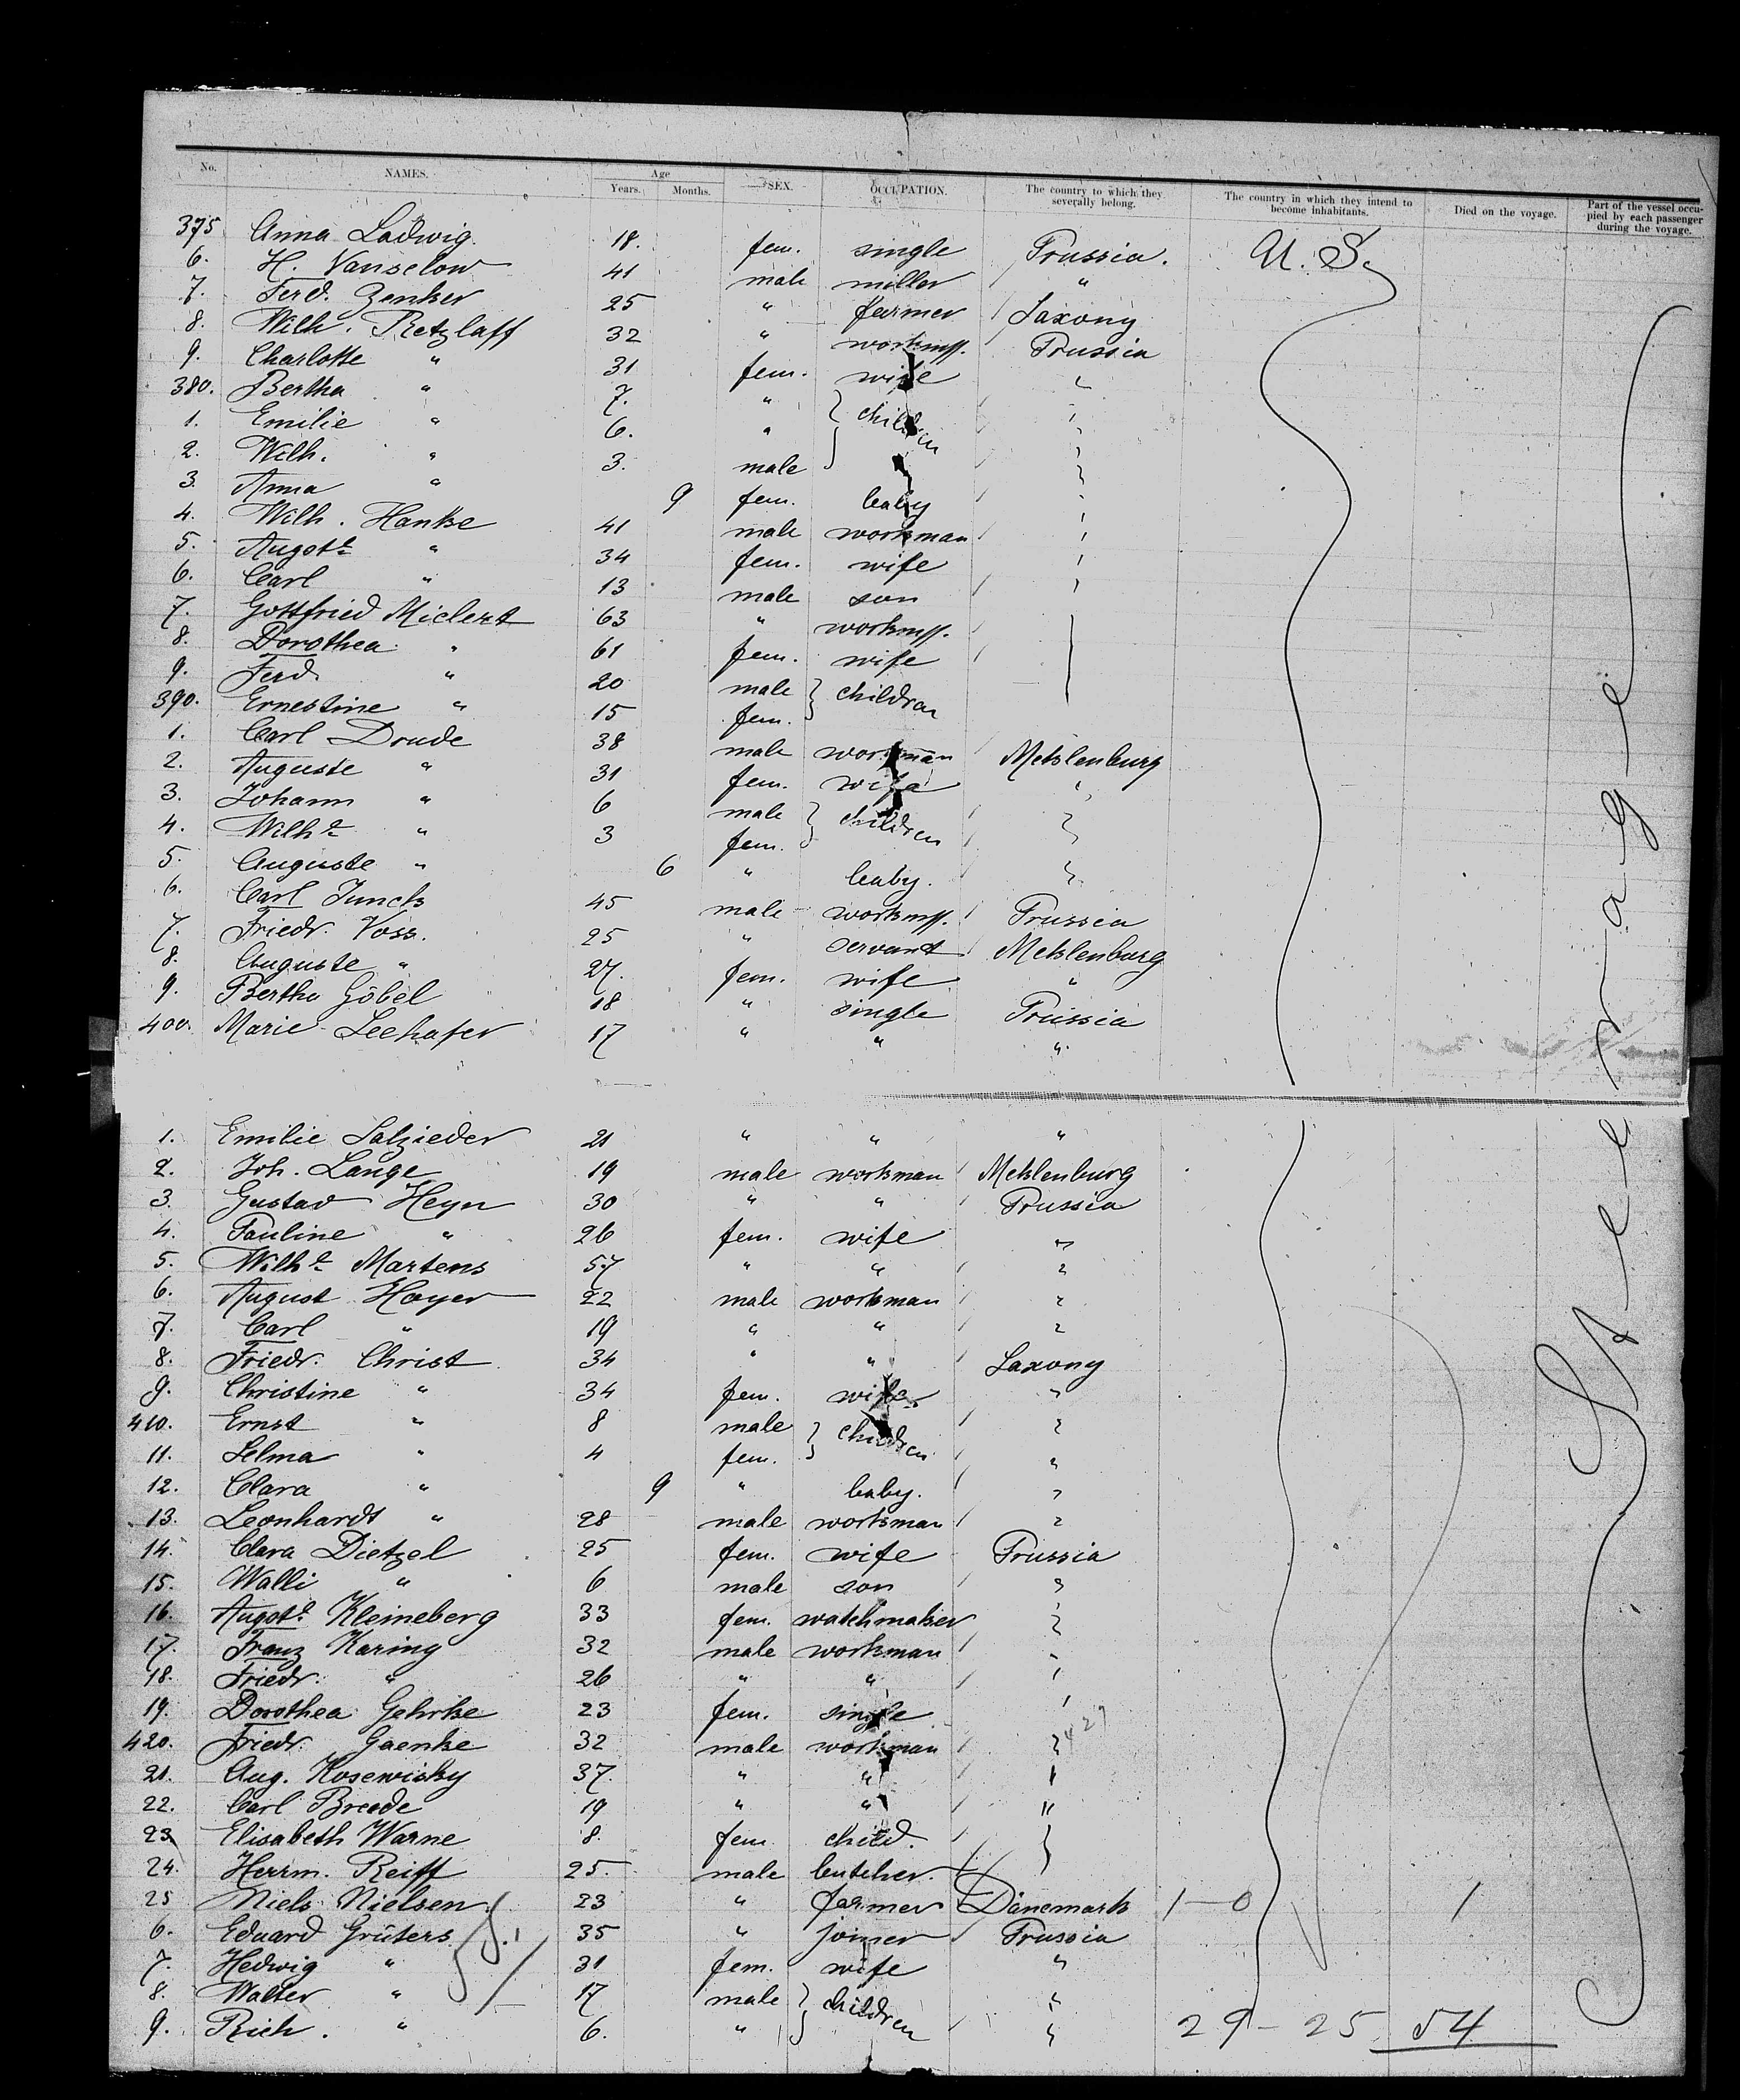 No. NAMES. Age Years. Months. SEX. OCCUPATION. The country to which they severally belong. The country in which they intend to become inhabitants. Died on the voyage. Part of the vessel occupied by each passenger during the voyage.
375 Anna Ladwig. 18. fem. single Prussia. U. S.
6. H. Vanselow 41 male miller "
7. Ferd. Zenker 25 " farmer Saxony
8. Wilh. Retzlaff 32 " workm. Prussia
9. Charlotte " 31 fem. wife "
380. Bertha " 7. " children "
1. Emilie " 6. " "
2. Wilh. " 3. male "
3. Anna " 9 fem. baby "
4. Wilh. Hanke 41 male workman "
5. Augste " 34 fem. wife "
6. Carl " 13 male son "
7. Gottfried Mielert 63 " workm.
8. Dorothea " 61 fem. wife
9. Ferd. " 20 male children
390. Ernestine " 15 fem.
1. Carl Drude 38 male workman Meklenburg
2. Auguste " 31 fem. wife "
3. Johann " 6 male children "
4. Wilhe " 3 fem. "
5. Auguste " 6 " baby. "
6. Carl Junck 45 male workm. Prussia
7. Friedr. Voss. 25 " servant Meklenburg
8. Auguste " 27. fem. wife "
9. Bertha Göbel 18 " single Prussia
400. Marie Leehafer 17 " " "
1. Emilie Salzieder 21 " " "
2. Joh. Lange 19 male workman Meklenburg
3. Gustav Heyn 30 " " Prussia
4. Pauline " 26 fem. wife "
5. Wilhe Martens 57 " " "
6. August Hoyer 22 male workman "
7. Carl " 19 " " "
8. Friedr. Christ 34 " " Saxony
9. Christine " 34 fem. wife "
410. Ernst " 8 male children "
11. Selma " 4 fem. "
12. Clara " 9 " baby. "
13. Leonhardt " 28 male workman "
14. Clara Dietzel 25 fem. wife Prussia
15. Walli " 6 male son "
16. Augste Kleineberg 33 fem. watchmaker "
17. Franz Karing 32 male workman "
18. Friedr. " 26 " " "
19. Dorothea Gehrke 23 fem. single "
420. Friedr. Gaenke 32 male workman "
21. Aug. Kosewisky 37. " " "
22. Carl Breede 19 " " "
23. Elisabeth Warne 8. fem child.
24. Herrm. Reiff 25. male butcher.
25 Niels Nielsen 23 " farmer Dänemark 1-0 1
6. Eduard Grüters 35 " joiner Prussia
7. Hedwig " 31 fem. wife "
8. Walter " 17 male children "
9. Rich. " 6. " " 29-25 54
Steerage